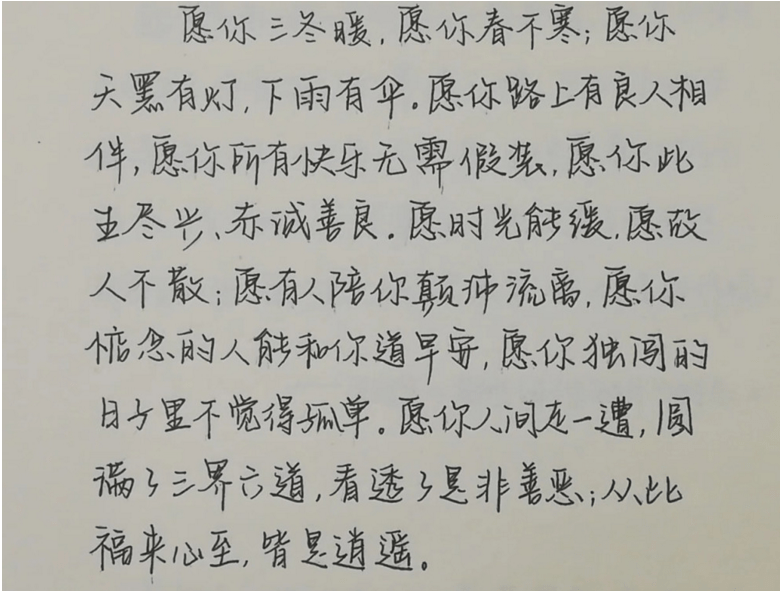 愿你三冬暖，愿你春不寒；愿你
天黑有灯，下雨有伞。愿你路上有良人相
伴，愿你所有快乐无需假装，愿你此
生尽兴、赤诚善良。愿时光能缓，愿故
人不散；愿有人陪你颠沛流离，愿你
惦念的人能和你道早安，愿你独闯的
日子里不觉得孤单。愿你人间走一遭，圆
满了三界六道，看透了是非善恶；从此
福来心至，皆是逍遥。